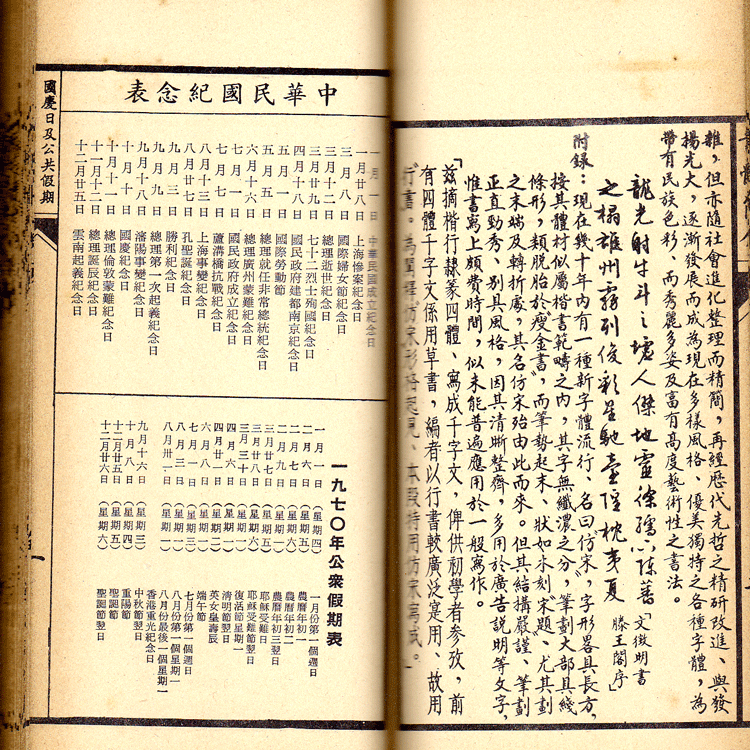 雜，但亦隨社會進化整理而精簡，再經歷代先哲之精研改進、與發
揚光大，逐漸發展而成為現在多樣風格、優美獨特之各種字體，為
帶有民族色彩，而秀麗多姿及富有高度藝術性之書法。
龍光射牛斗之墟人傑地靈徐孺下陳蕃 「文徵明書
之榻雄州霧列俊彩星馳臺隍枕夷夏 滕王閣序」
附錄：現在幾十年內有一種新字體流行、名曰仿宋，字形畧具長方，
按其體材似屬楷書範疇之內，其字無纖濃之分，筆劃大部具綫
條形，類脫胎於瘦金書，而筆勢起末、狀如木刻宋題、尤其劃
之末端及轉折處，其名仿宋殆由此而來。但其結構嚴謹、筆劃
正直勁秀、別具風格，因其清晰整齊，多用於廣告說明等文字，
惟書寫上頗費時間，似未能普遍應用於一般寫作。
「茲摘楷行隸篆四體、寫成千字文，俾供初學者參攷，前
有四體千字文係用草書，編者以行書較廣泛寔用、故用
行書。為闡釋仿宋形格起見、本段特用仿宋寫成。」
中華民國紀念表
一月一日 中華民國成立紀念日
一月廿八日 上海慘案紀念日
三月八日 國際婦女節紀念日
三月十二日 總理逝世紀念日
三月廿九日 七十二烈士殉國紀念日
四月十八日 國民政府建都南京紀念日
五月一日 國際勞動節
五月五日 總理就任非常總統紀念日
六月十六日 總理廣州蒙難紀念日
七月一日 國民政府成立紀念日
七月七日 蘆溝橋抗戰紀念日
八月十三日 上海事變紀念日
八月廿七日 孔聖誕紀念日
九月三日 勝利紀念日
九月九日 總理第一次起義紀念日
九月十八日 瀋陽事變紀念日
十月十日 國慶紀念日
十月十一日 總理倫敦蒙難紀念日
十一月十二日 總理誕辰紀念日
十二月廿五日 雲南起義紀念日
一九七〇年公衆假期表
一月一日（星期四） 一月份第一個週日
二月六日（星期五） 農曆年初一
二月七日（星期六） 農曆年初二
二月九日（星期一） 農曆年初三翌日
三月廿七日（星期五） 耶穌受難日
三月廿八日（星期六） 耶穌受難節翌日
三月三十日（星期一） 復活節星期一
四月六日（星期一） 清明節翌日
四月廿一日（星期二） 英女皇壽辰
六月八日（星期一） 端午節
七月一日（星期三） 七月份第一個週日
八月三日（星期一） 八月份第一個星期一
八月卅一日（星期一） 八月份最後一個星期一 香港重光紀念日
九月十六日（星期三） 中秋節翌日
十月八日（星期四） 重陽節
十二月廿五日（星期五） 聖誕節
十二月廿六日（星期六） 聖誕節翌日
國慶日及公共假期